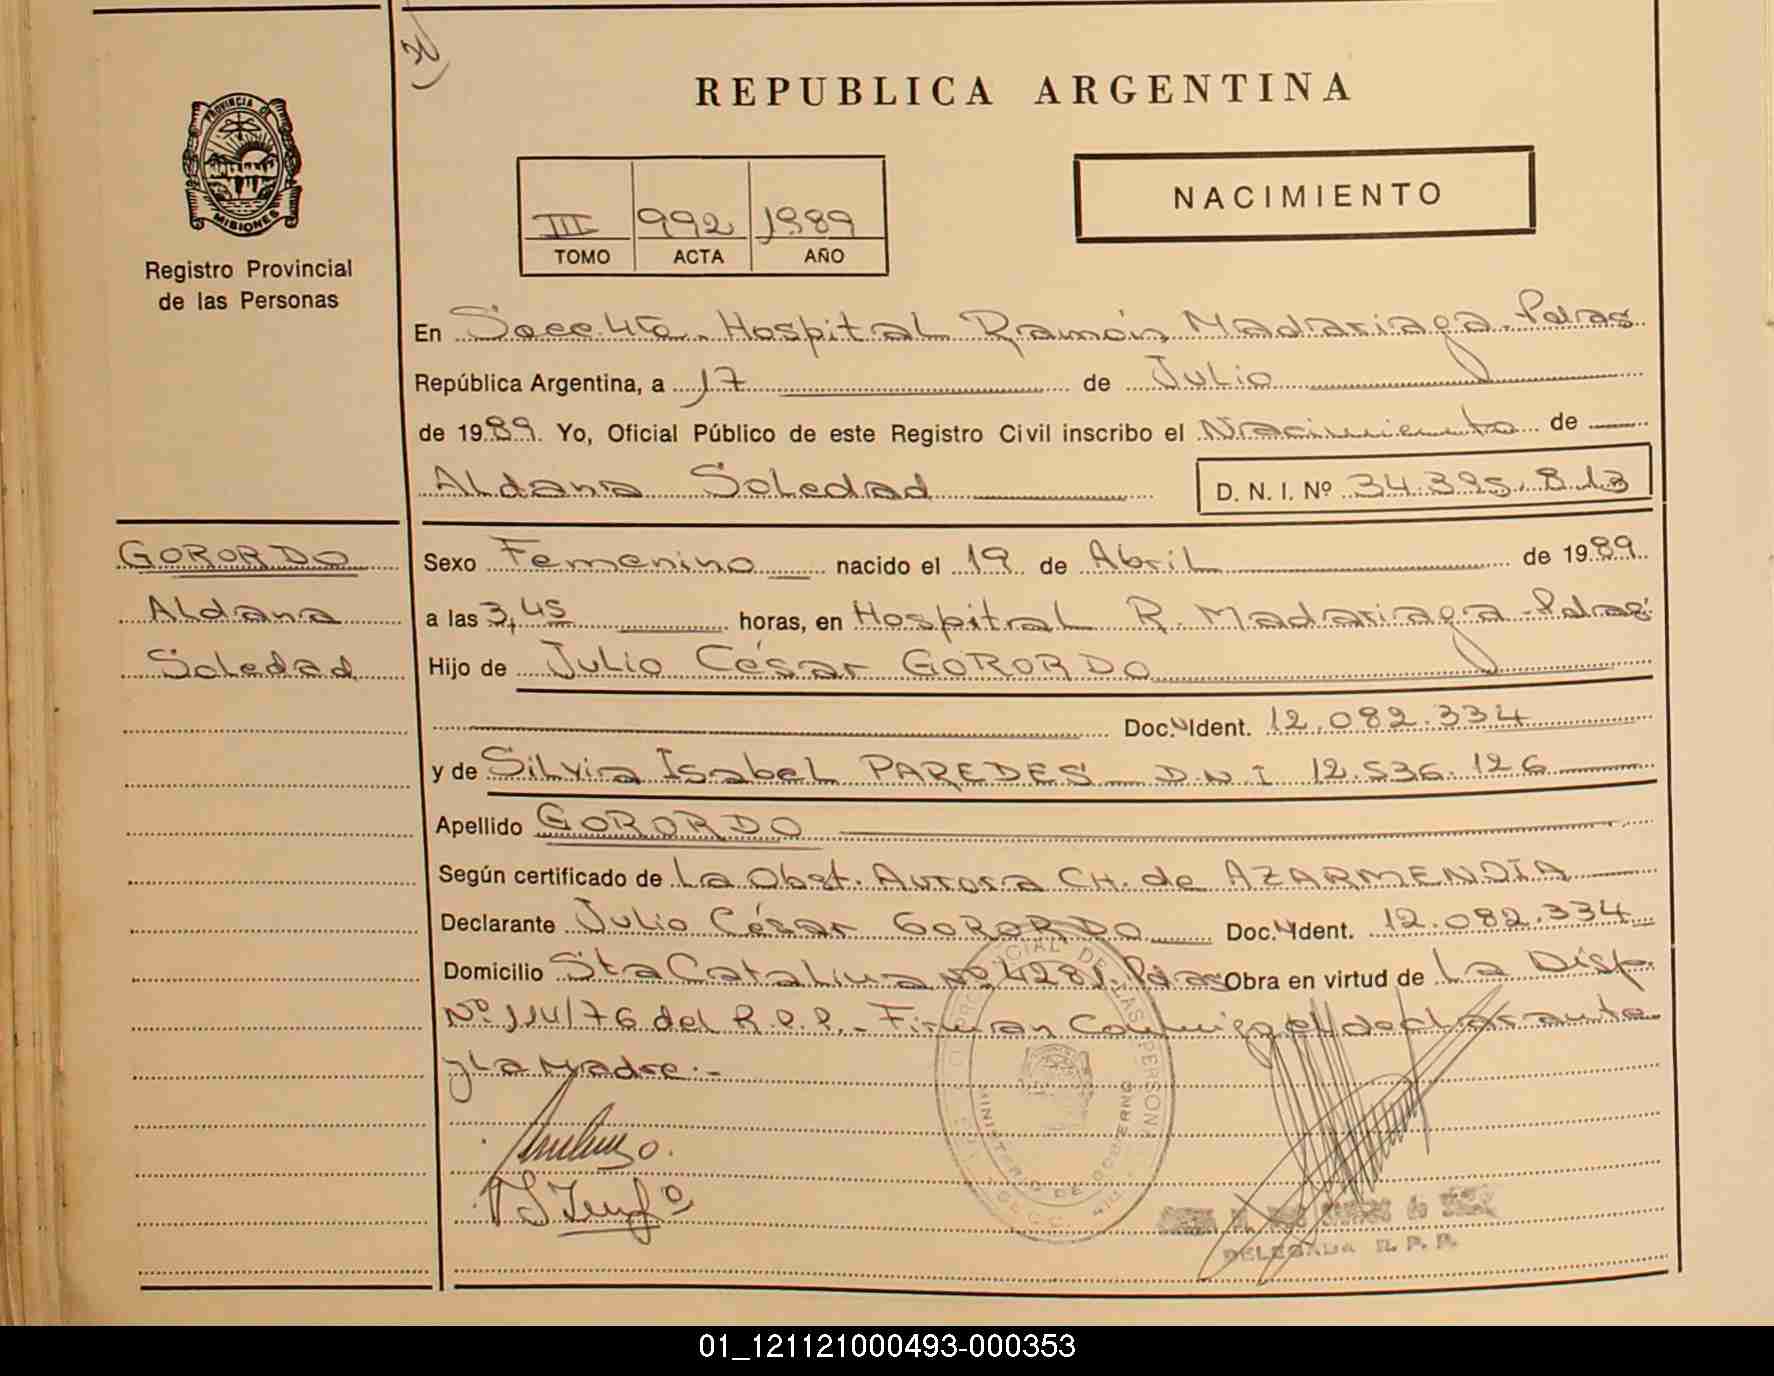 REPUBLICA ARGENTINA
PROVINCIA DE
MISIONES
Registro Provincial
de las Personas
NACIMIENTO
III 992 1989
TOMO ACTA AÑO
En Secc. 4ta. Hospital Ramón Madariaga - Pdas
República Argentina, a 17 de Julio
de 1989. Yo, Oficial Público de este Registro Civil inscribo el Nacimiento de
Aldana Soledad D. N. I. Nº 34.395.813
GORORDO
Aldana
Soledad
Sexo Femenino nacido el 19 de Abril de 1989
a las 3,45 horas, en Hospital R. Madariaga - Pdas
Hijo de Julio César GORORDO
Doc. Ident. 12.082.334
y de Silvia Isabel PAREDES D.N.I 12.536.126
Apellido GORORDO
Según certificado de La Obst. Aurora CH. de AZARMENDIA
Declarante Julio César GORORDO Doc. Ident. 12.082.334
Domicilio Sta Catalina Nº 4281. Pdas Obra en virtud de La Disp.
Nº 114/76 del R.P.P. - Firman Conmigo el declarante
y La Madre.-
MINISTERIO DE GOBIERNO
DELEGADA R. P. P.
01_121121000493-000353